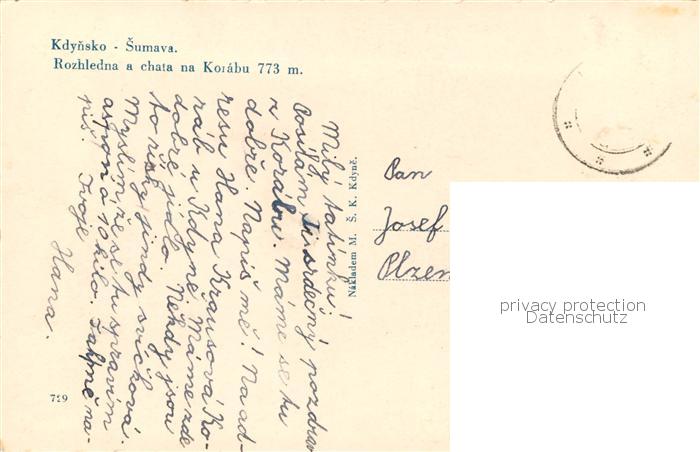 Kdyňsko - Šumava.
Rozhledna a chata na Korábu 773 m.
Milý tatínku!
Posílám Ti srdečný pozdrav
z Korábu. Máme se tu
dobře. Napiš mě! Na ad-
resu Hana Krausová Ko-
ráb u Kdyně. Máme zde
dobré jídlo. Někdy jsou
to řízky jindy svíčková.
Myslím, že se tu spravím
aspoň o 10 kilo. Tak mě na-
piš. Tvoje
Hana.
729
Nákladem M. Š. K. Kdyně.
Pan
Josef
Plzeň
privacy protection
Datenschutz